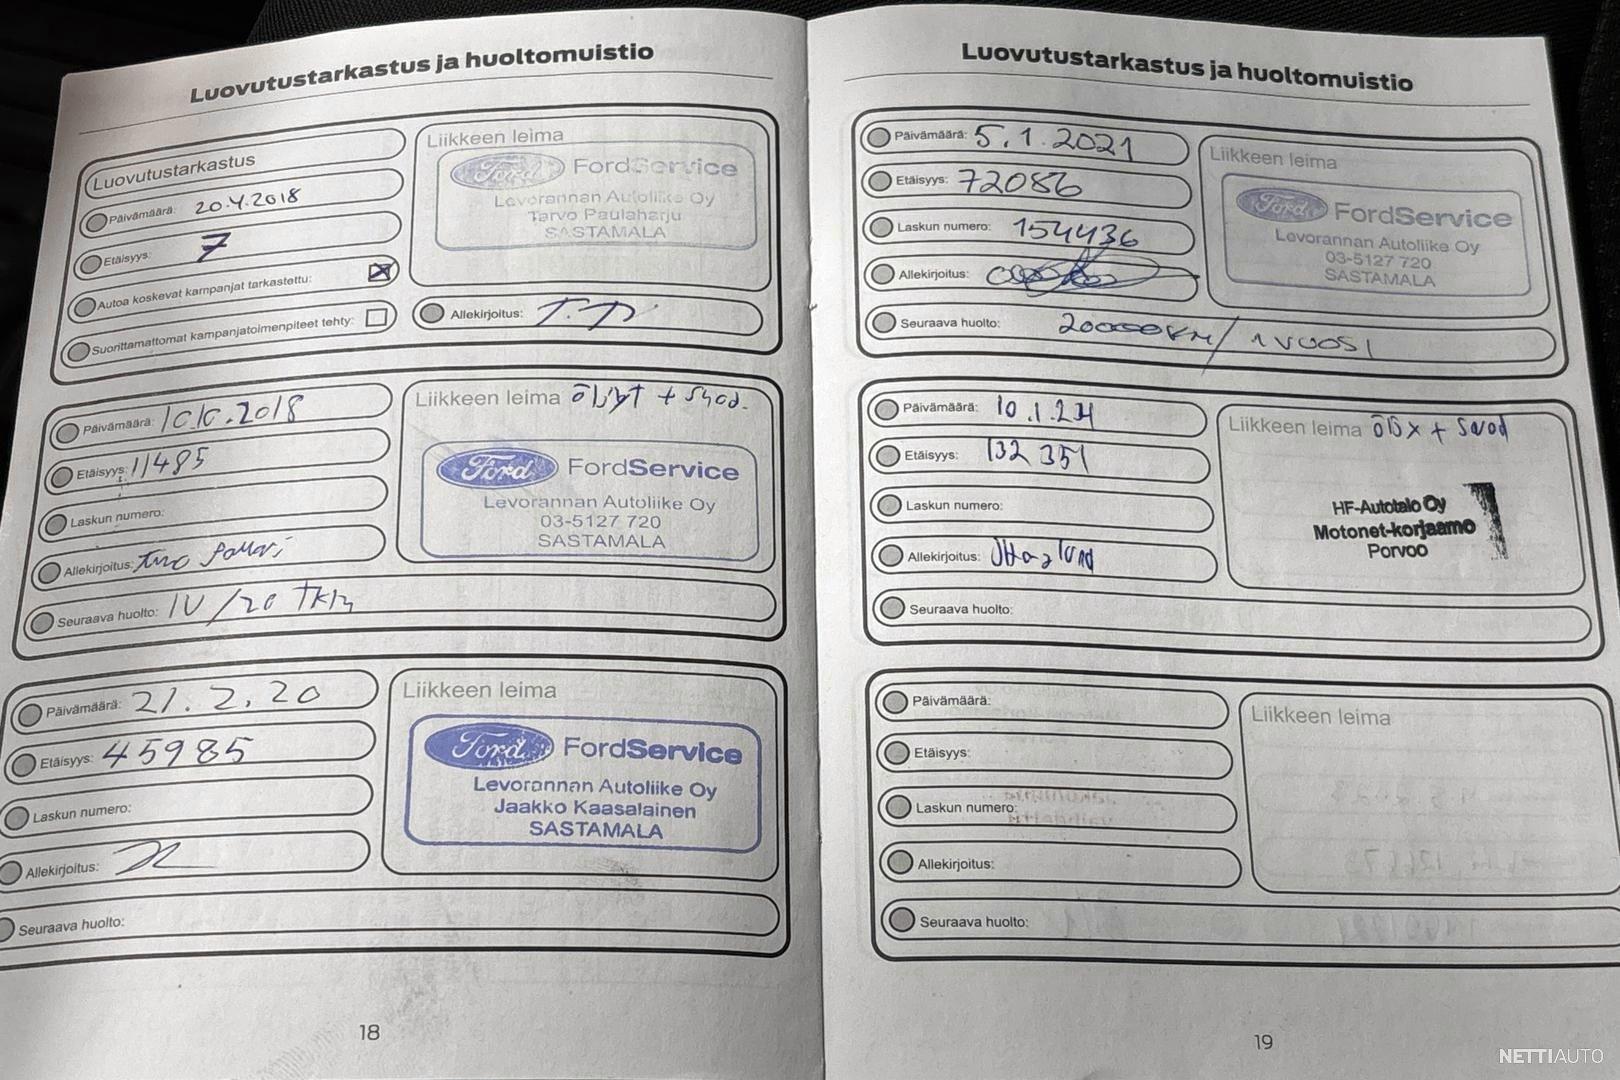 Luovutustarkastus ja huoltomuistio
Luovutustarkastus
Päivämäärä: 20.4.2018
Etäisyys: 7
Autoa koskevat kampanjat tarkastettu:
Suorittamattomat kampanjatoimenpiteet tehty:
Liikkeen leima
Ford FordService
Levorannan Autoliike Oy
Tarvo Paulaharju
SASTAMALA
Allekirjoitus:
Päivämäärä: 10.10.2018
Etäisyys: 11485
Laskun numero:
Allekirjoitus:
Seuraava huolto: 1V/20 tkm
Liikkeen leima
Ford FordService
Levorannan Autoliike Oy
03-5127 720
SASTAMALA
Päivämäärä: 21.2.20
Etäisyys: 45985
Laskun numero:
Allekirjoitus:
Seuraava huolto:
Liikkeen leima
Ford FordService
Levorannan Autoliike Oy
Jaakko Kaasalainen
SASTAMALA
18
Luovutustarkastus ja huoltomuistio
Päivämäärä: 5.1.2021
Etäisyys: 72086
Laskun numero: 154436
Allekirjoitus:
Seuraava huolto: 20000km/1 vuosi
Liikkeen leima
Ford FordService
Levorannan Autoliike Oy
03-5127 720
SASTAMALA
Päivämäärä: 10.1.24
Etäisyys: 132 351
Laskun numero:
Allekirjoitus:
Seuraava huolto:
Liikkeen leima
HF-Autotalo Oy
Motonet-korjaamo
Porvoo
Päivämäärä:
Etäisyys:
Laskun numero:
Allekirjoitus:
Seuraava huolto:
Liikkeen leima
19
NETTIAUTO